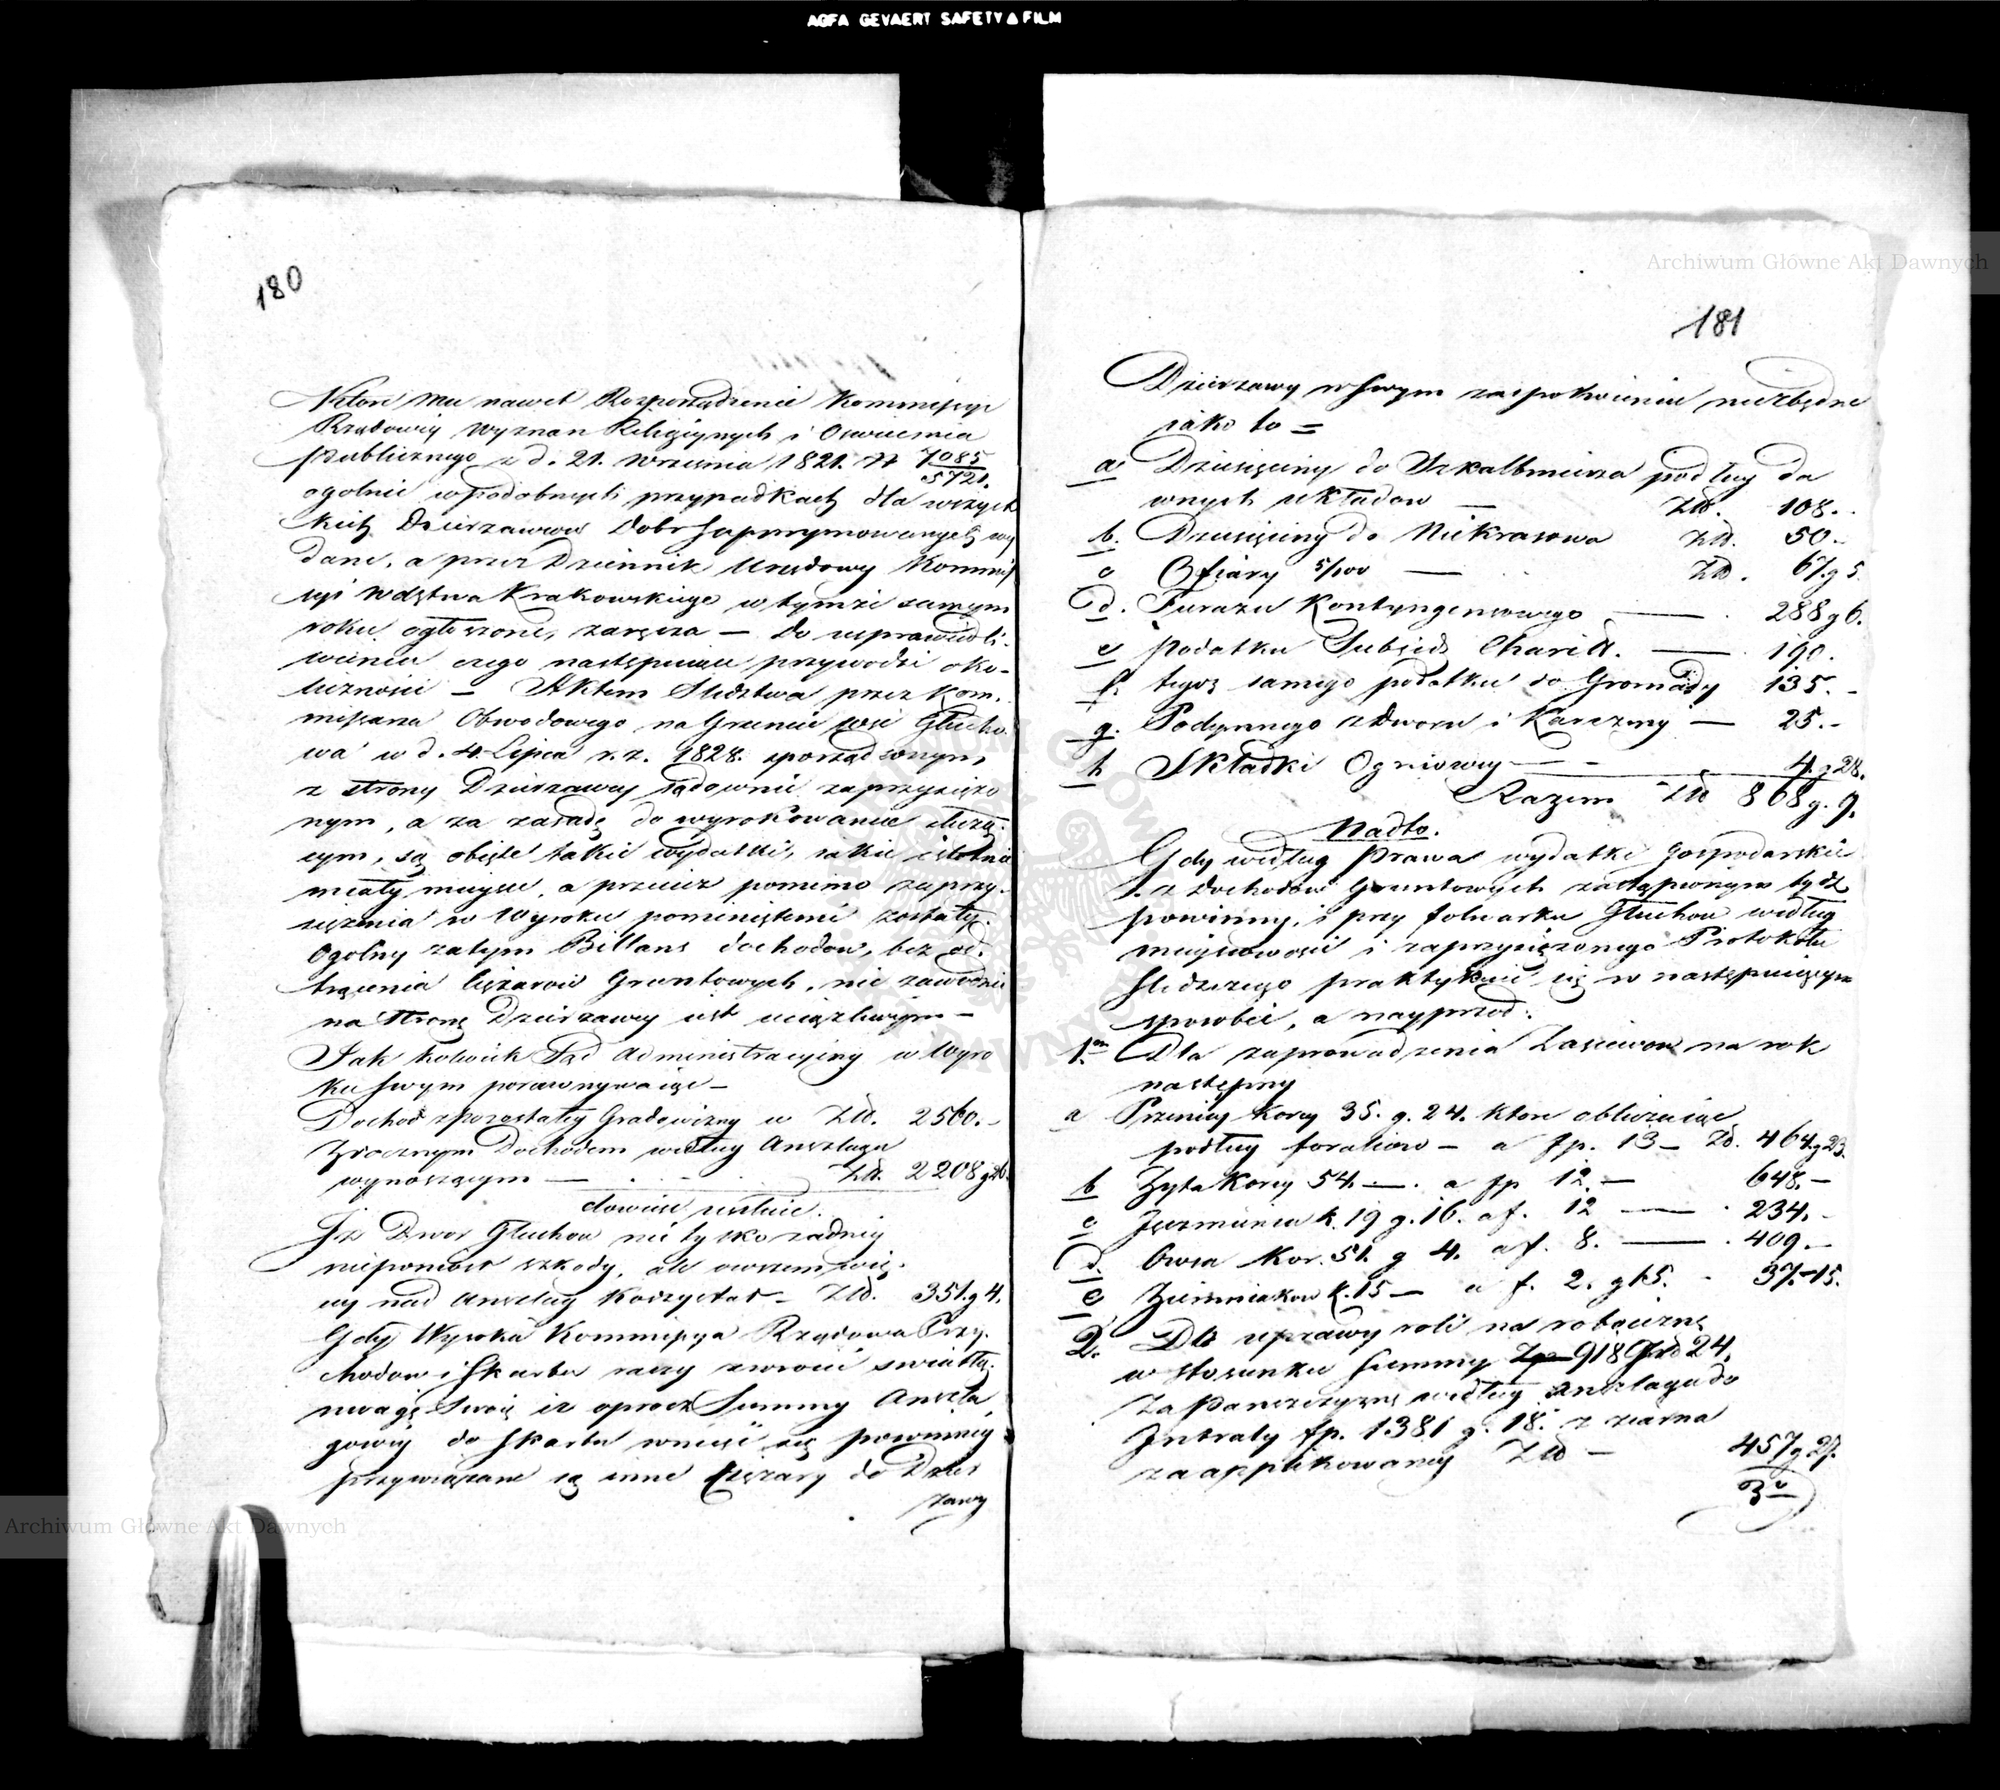 AGFA GEVAERT SAFETY FILM
Archiwum Główne Akt Dawnych
180
Które mu nawet Rozporządzenie Kommissyi
Rządowéy Wyznań Religiynych i Oswiecenia
Publicznego z d. 21. Września 1821. N 7085
5721.
ogolnie w podobnych przypadkach dla wszyst
kich Dzierzawcow Dobr Supprymowanych wy
dane, a przez Dziennik Urzędowy Kommis
syi Wdztwa Krakowskiego w tymże samym
roku ogłoszone, zaręcza — do usprawiedli-
wienia czego następuiące przywodzi oko-
licznosci — Aktem Sledztwa przez Kom-
missarza Obwodowego na Gruncie wsi Głucho
wa w d. 4 Lipca r. z. 1828. sporządzonym,
z strony Dzierzawcy sądownie zaprzysiężo
nym, a za zasadę do wyrokowania służą-
cym, są obięte takie wydatki, iakie istotnie
miały mieysce, a przecież pomimo zaprzy-
siężenia w Wyroku pominiętemi zostały.
Ogolny zatym Billans dochodow, bez od-
trącenia ciężarow Gruntowych, nie zawodnie
na stronę Dzierzawcy iest uciążliwym —
Jak kolwiek Sąd Administracyiny w Wyro
ku swym porownywaiąc —
Dochod z pozostałey Gradowizny w Złł. 2560. -
Zrocznym Dochodem według Anszlagu
wynoszącym — Złł. 2208 g 26.
dowieść usiłuie.
Iż Dwor Głuchow nie tylko żadney
nieponiosł szkody, ale owszem wię-
cey nad Anszlag korzystał — Złł. 351. g 4.
Gdy Wysoka Kommissya Rządowa Przy-
chodow i Skarbu raczy zwrocić swiatłą
uwagę Swoię iż oprocz Summy Anszla
gowéy do Skarbu wnieść się powinney
przywiązane są inne ciężary do Dzier
żawy
181
Dzierzawy w swym zaspokoieniu niezbędne
iako to =
a. Dziesięciny do Szkalbmierza podług da
wnych układow — Złł. 108. -
b. Dziesięciny do Niekrasowa Złł. 50. -
c Ofiary 5/100 — Złł. 67. g 5.
d. Furażu Kontyngensowego — 288 g 6.
e podatku Subsid: Charitt. — 190.
f. tegoż samego podatku do Gromady 135. -
g. Podymnego z Dworu i Karczmy — 25. -
h Składki Ogniowey — 4. g 28.
Razem Złł 868 g. 9.
Nadto.
Gdy według Prawa wydatki Gospodarskie
z Dochodow Gruntowych zastąpionym bydź
powinny, i przy folwarku Głuchow według
mieyscowości i zaprzysiężonego Protokołu
sledczego praktykuie się w następuiącym
sposobie, a nayprzod:
1. Dla zaprowadzenia Zasiewow na rok
następny
a Pszenicy Korcy 35. g. 24. ktore obliczaiąc
podług foraliow — a fp. 13 — Zł. 464. g 23.
b Żyta Korcy 54. — a fp 12. — 648. —
c Jęczmienia k. 19 g. 16. a f. 12 — 234. -
d. Owsa Kor. 51. g 4. a f. 8. — 409. —
e Ziemniakow k. 15 — a f. 2. g 15. - 37. - 15.
2. Do uprawy roli na robociznę
w stosunku Summy 918 24.
za Pańszczyznę według Anszlagu do
Intraty fp. 1381 g. 18. z ziarna
zaapplikowaney Złł — 457 g. 27.
3°
Archiwum Główne Akt Dawnych